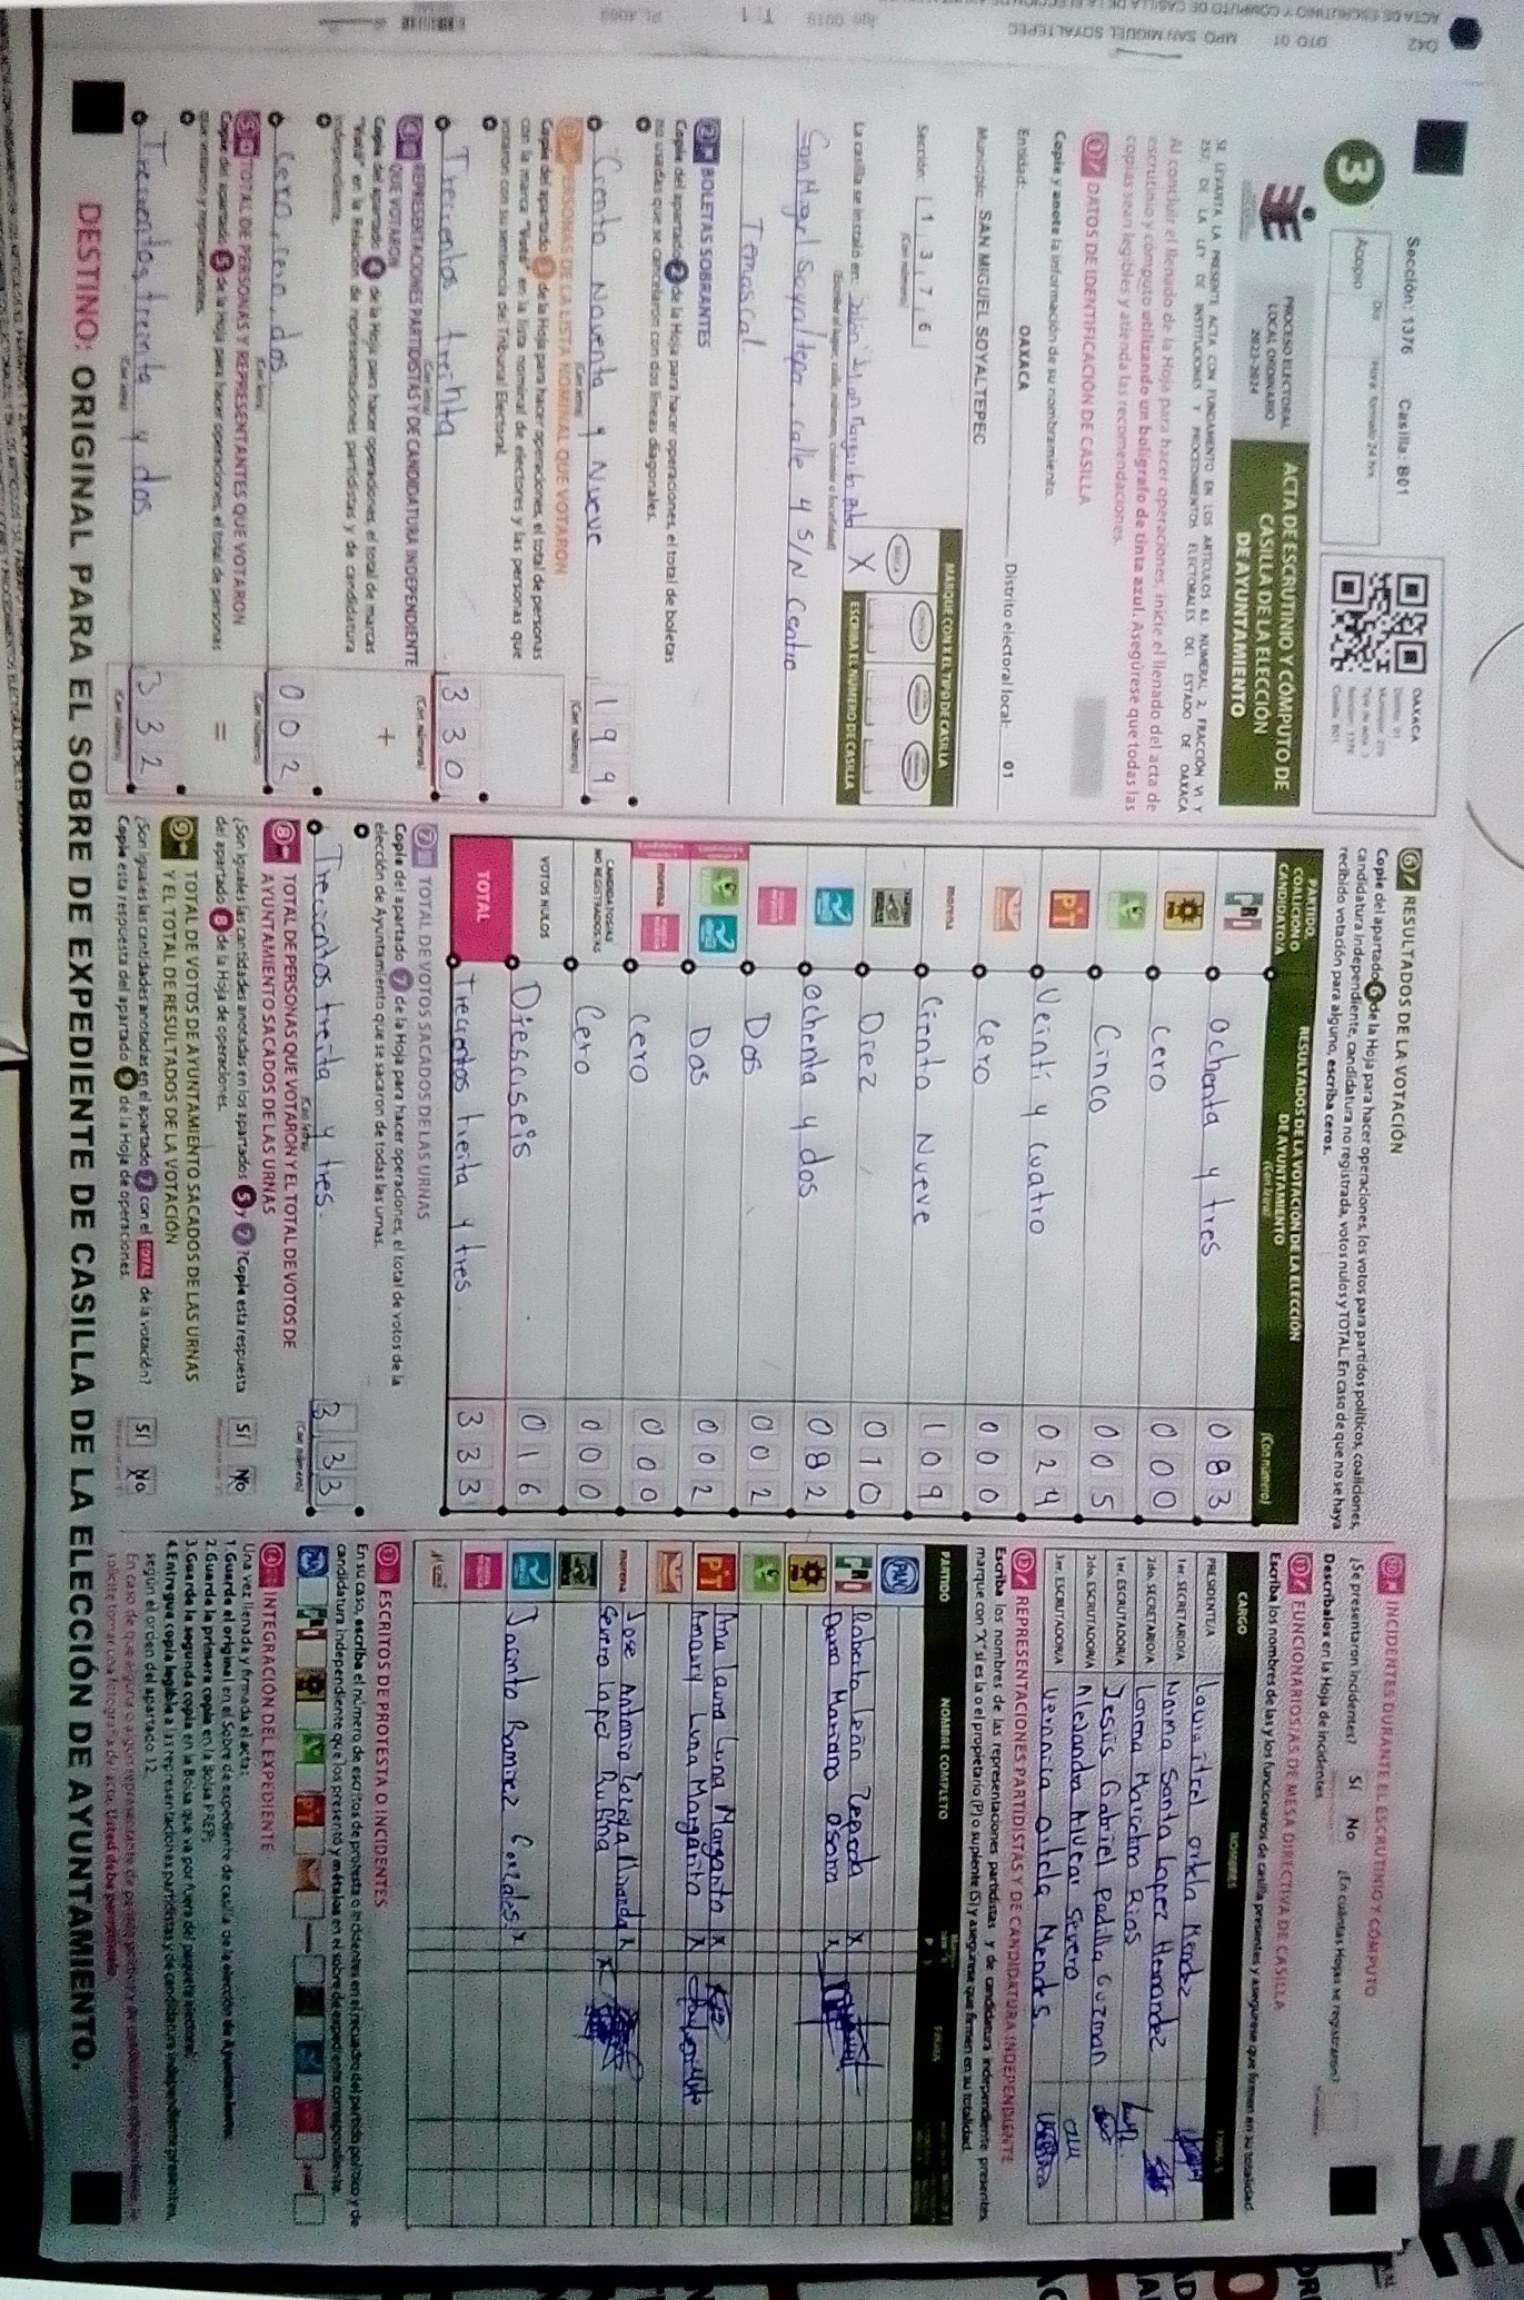 Sección: 1376 Casilla: B01
OAXACA
3
Acopio
Día
Hora: formato 24 hrs
PROCESO ELECTORAL
LOCAL ORDINARIO
2023-2024
ACTA DE ESCRUTINIO Y CÓMPUTO DE
CASILLA DE LA ELECCIÓN
DE AYUNTAMIENTO
SE LEVANTA LA PRESENTE ACTA CON FUNDAMENTO EN LOS ARTÍCULOS 63, NUMERAL 2, FRACCIÓN VI Y
257, DE LA LEY DE INSTITUCIONES Y PROCEDIMIENTOS ELECTORALES DEL ESTADO DE OAXACA
Al concluir el llenado de la Hoja para hacer operaciones, inicie el llenado del acta de
escrutinio y cómputo utilizando un bolígrafo de tinta azul. Asegúrese que todas las
copias sean legibles y atienda las recomendaciones.
1 DATOS DE IDENTIFICACIÓN DE CASILLA
Copie y anote la información de su nombramiento.
Entidad: OAXACA Distrito electoral local: 01
Municipio: SAN MIGUEL SOYALTEPEC
Sección: 1 3 7 6
(Con número)
MARQUE CON X EL TIPO DE CASILLA
X
ESCRIBA EL NÚMERO DE CASILLA
La casilla se instaló en:
(Escriba el lugar, calle, número, colonia o localidad)
San Miguel Soyaltepec, calle 4 S/N Centro
Temascal
2 BOLETAS SOBRANTES
Copie del apartado 2 de la Hoja para hacer operaciones, el total de boletas
no usadas que se cancelaron con dos líneas diagonales.
Ciento Noventa y Nueve 199
(Con letra) (Con número)
3 PERSONAS DE LA LISTA NOMINAL QUE VOTARON
Copie del apartado 3 de la Hoja para hacer operaciones, el total de personas
con la marca "Votó" en la lista nominal de electores y las personas que
votaron con su sentencia del Tribunal Electoral.
Trecientos treinta 330
(Con letra) (Con número)
4 REPRESENTACIONES PARTIDISTAS Y DE CANDIDATURA INDEPENDIENTE
QUE VOTARON
Copie del apartado 4 de la Hoja para hacer operaciones, el total de marcas
"Votó" en la Relación de representaciones partidistas y de candidatura
independiente.
+
Cero, cero, dos 002
(Con letra) (Con número)
5 TOTAL DE PERSONAS Y REPRESENTANTES QUE VOTARON
Copie del apartado 5 de la Hoja para hacer operaciones, el total de personas
que votaron y representantes.
=
Trecientos treinta y dos 332
(Con letra) (Con número)
6 RESULTADOS DE LA VOTACIÓN
Copie del apartado 6 de la Hoja para hacer operaciones, los votos para partidos políticos, coaliciones,
candidatura independiente, candidatura no registrada, votos nulos y TOTAL. En caso de que no se haya
recibido votación para alguno, escriba ceros.
PARTIDO, COALICIÓN O CANDIDATO/A
RESULTADOS DE LA VOTACIÓN DE LA ELECCIÓN
DE AYUNTAMIENTO
(Con letra) (Con número)
PRI ochenta y tres 083
cero 000
Cinco 005
PT Veinti y cuatro 024
cero 000
morena Ciento Nueve 109
Diez 010
ochenta y dos 082
Dos 002
Dos 002
morena cero 000
CANDIDATOS/AS
NO REGISTRADOS/AS Cero 000
VOTOS NULOS Diesciseis 016
TOTAL Trecientos treita y tres 333
7 TOTAL DE VOTOS SACADOS DE LAS URNAS
Copie del apartado 7 de la Hoja para hacer operaciones, el total de votos de la
elección de Ayuntamiento que se sacaron de todas las urnas.
Trecientos treita y tres. 333
(Con letra) (Con número)
8 TOTAL DE PERSONAS QUE VOTARON Y EL TOTAL DE VOTOS DE
AYUNTAMIENTO SACADOS DE LAS URNAS
¿Son iguales las cantidades anotadas en los apartados 5 y 7? Copie esta respuesta
del apartado 8 de la Hoja de operaciones. SÍ No
9 TOTAL DE VOTOS DE AYUNTAMIENTO SACADOS DE LAS URNAS
Y EL TOTAL DE RESULTADOS DE LA VOTACIÓN
¿Son iguales las cantidades anotadas en el apartado 7 con el TOTAL de la votación?
Copie esta respuesta del apartado 9 de la Hoja de operaciones. SÍ No
10 INCIDENTES DURANTE EL ESCRUTINIO Y CÓMPUTO
¿Se presentaron incidentes? SÍ No ¿En cuántas Hojas se registraron?
Descríbalos en la Hoja de incidentes
11 FUNCIONARIOS/AS DE MESA DIRECTIVA DE CASILLA
Escriba los nombres de las y los funcionarios de casilla presentes y asegúrese que firmen en su totalidad.
CARGO NOMBRES FIRMAS
PRESIDENTE/A Laura itzel ortela Mendez
1er. SECRETARIO/A Norma Santa Lopez Hernandez
2do. SECRETARIO/A Lorena Marcelino Rios
1er. ESCRUTADOR/A Jesús Gabriel Padilla Guzman
2do. ESCRUTADOR/A Alejandra Alvear Severo
3er. ESCRUTADOR/A Veronica ortela Mendes
12 REPRESENTACIONES PARTIDISTAS Y DE CANDIDATURA INDEPENDIENTE
Escriba los nombres de las representaciones partidistas y de candidatura independiente presentes,
marque con "X" si es la o el propietario (P) o suplente (S) y asegúrese que firmen en su totalidad.
PARTIDO NOMBRE COMPLETO FIRMA
PAN
PRI Roberto León Zepeda X
Mariano Osorio X
PT Ana Laura Luna Margarito X
Amaury Luna Margarito X
morena Jose Antonio Miranda X
Severo Lopez Rufina X
Jacinto Ramirez Gonzales X
13 ESCRITOS DE PROTESTA O INCIDENTES
En su caso, escriba el número de escritos de protesta o incidentes en el recuadro del partido político y de
candidatura independiente que los presentó y métalos en el sobre de expediente correspondiente.
14 INTEGRACIÓN DEL EXPEDIENTE
Una vez llenada y firmada el acta:
1. Guarde el original en el Sobre de expediente de casilla de la elección de Ayuntamiento;
2. Guarde la primera copia en la Bolsa PREP;
3. Guarde la segunda copia en la Bolsa que va por fuera del paquete electoral;
4. Entregue copia legible a las representaciones partidistas y de candidatura independiente presentes,
según el orden del apartado 12.
DESTINO: ORIGINAL PARA EL SOBRE DE EXPEDIENTE DE CASILLA DE LA ELECCIÓN DE AYUNTAMIENTO.